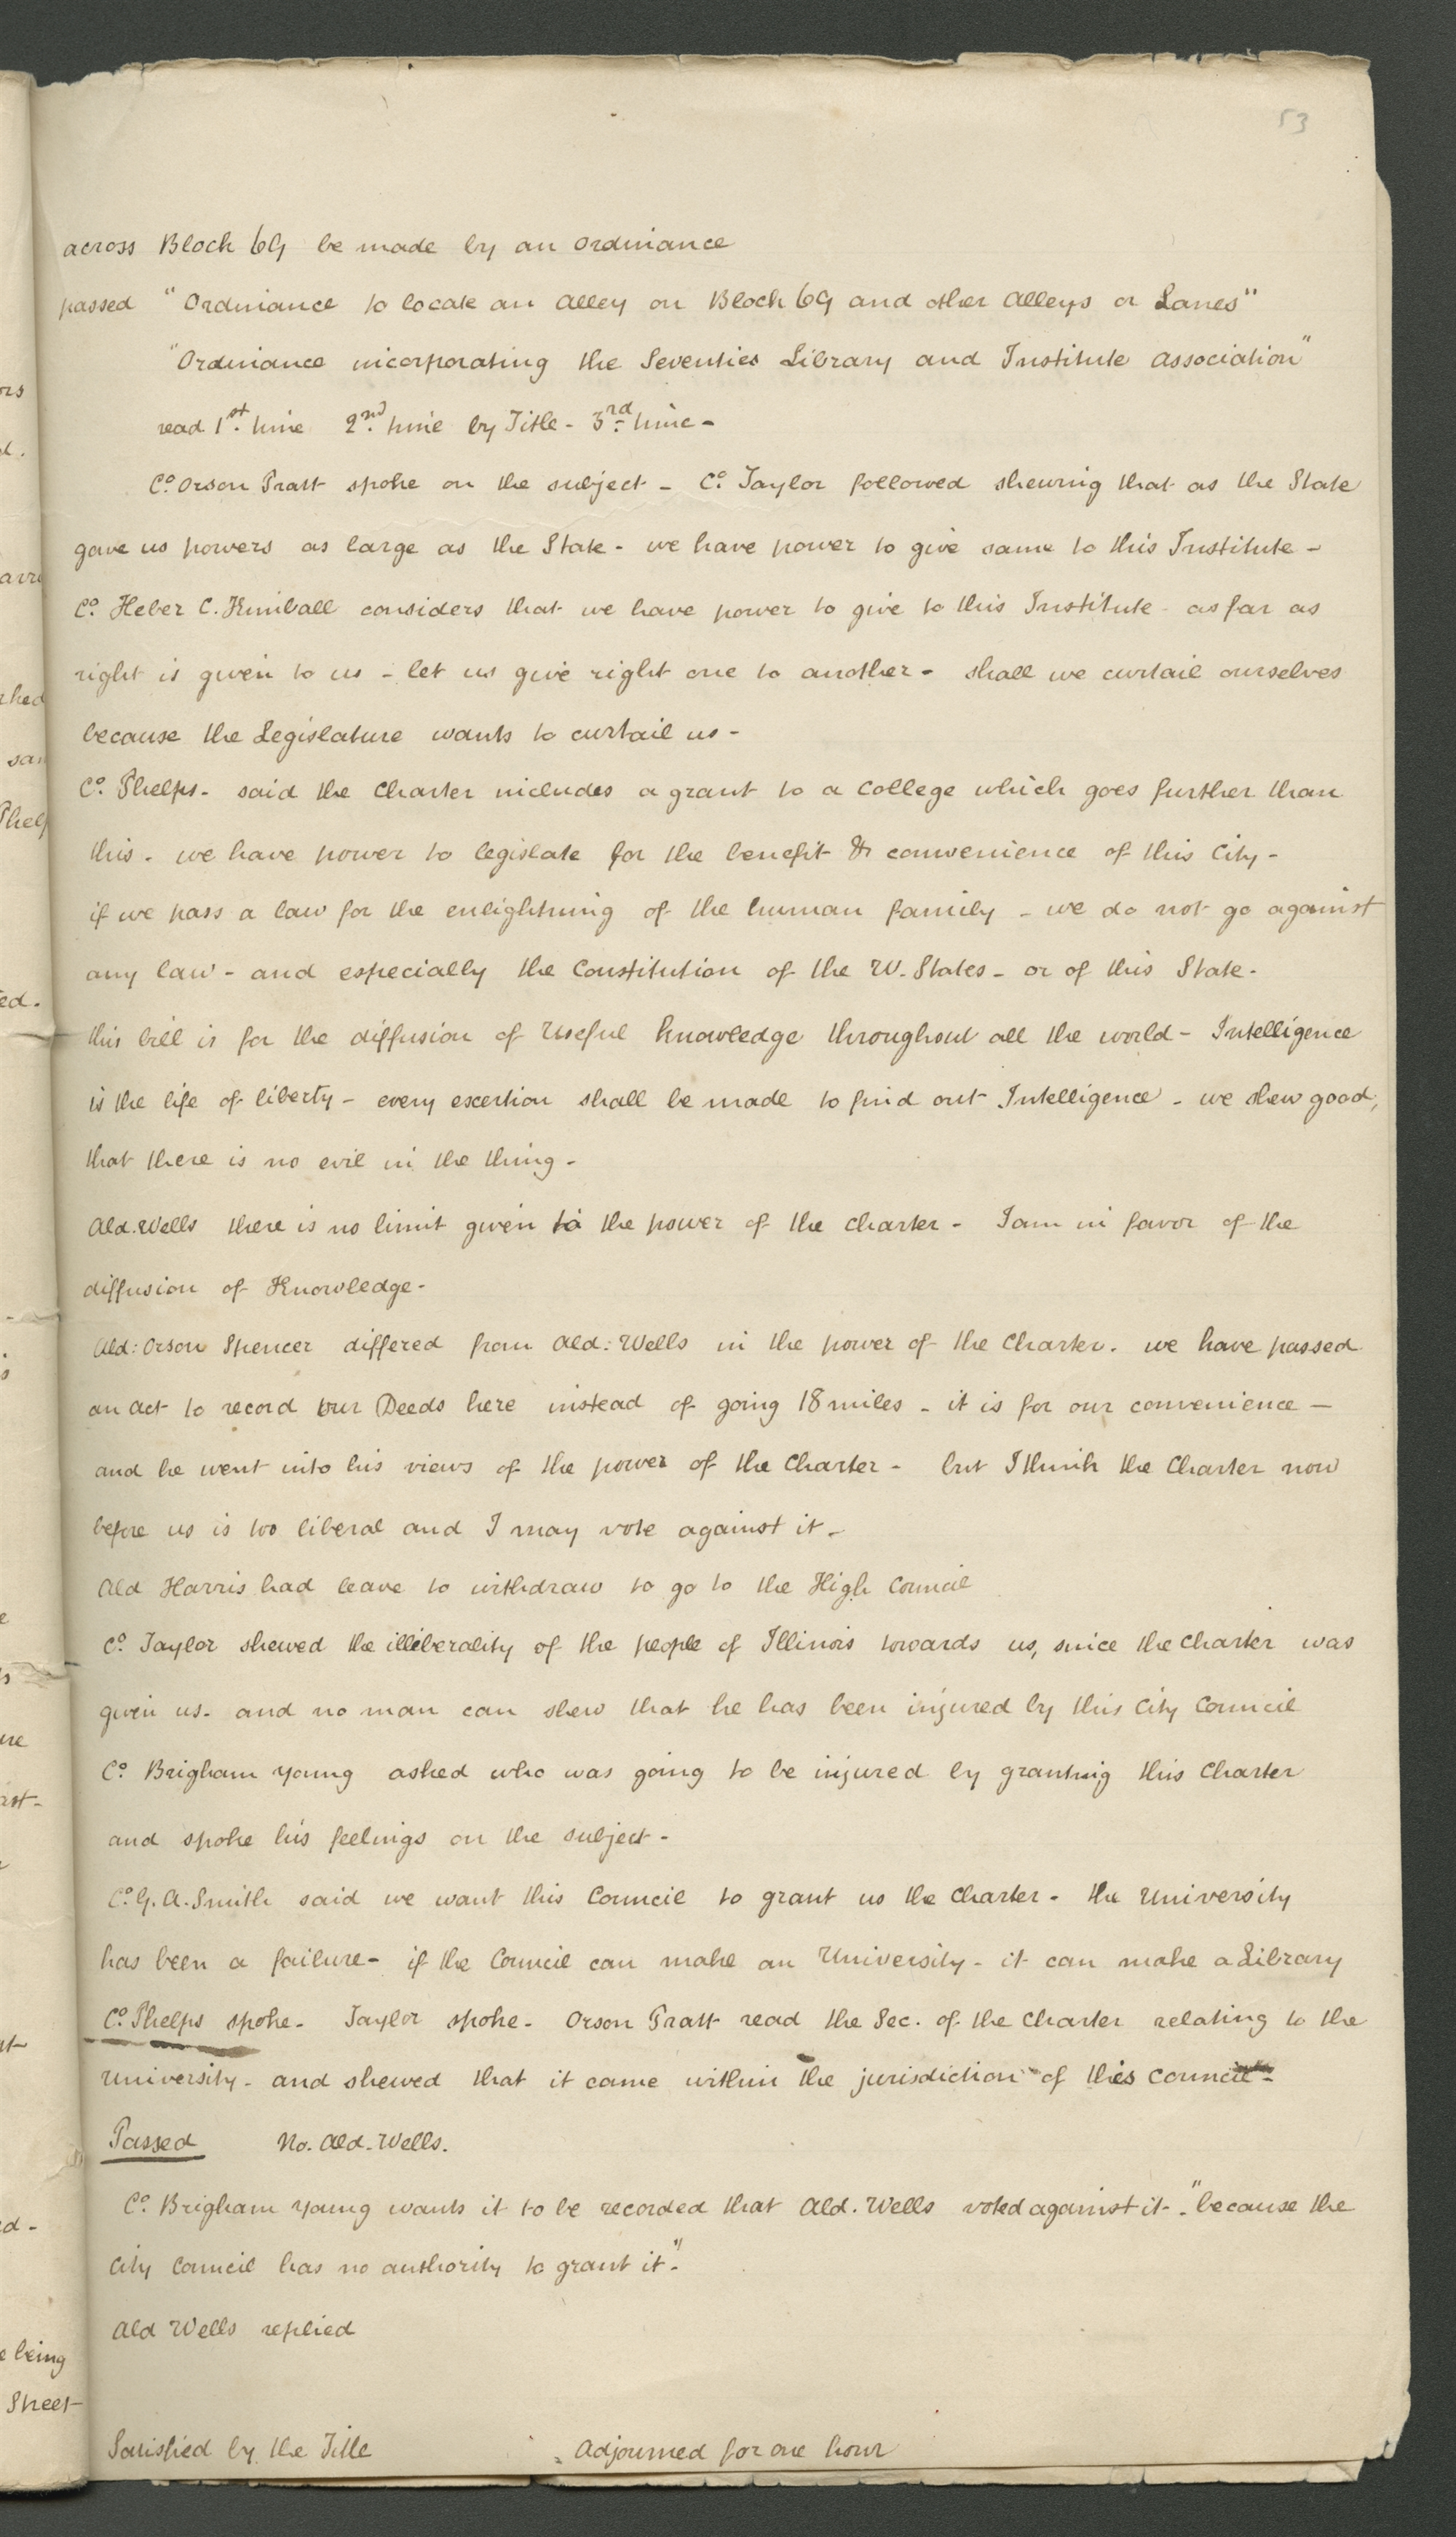 53
across Block 69 be made by an ordinance
passed "Ordinance to locate an Alley on Block 69 and other Alleys or Lanes"
"Ordinance incorporating the Seventies Library and Institute association"
read 1st. time 2nd. time by Title - 3rd. time -
Co. Orson Pratt spoke on the subject - Co. Taylor followed shewing that as the State
gave us powers as large as the State - we have power to give same to this Institute -
Co. Heber C. Kimball considers that we have power to give to this Institute - as far as
right is given to us - let us give right one to another - shall we curtail ourselves
because the Legislature wants to curtail us -
Co. Phelps - said the Charter includes a grant to a College which goes further than
this - we have power to legislate for the benefit & convenience of this City -
if we pass a law for the enlightning of the human family - we do not go against
any law - and especially the Constitution of the U. States - or of this State -
this bill is for the diffusion of Useful Knowledge throughout all the world - Intelligence
is the life of liberty - every exertion shall be made to find out Intelligence - we shew good,
that there is no evil in the thing -
Ald. Wells there is no limit given to the power of the charter - I am in favor of the
diffusion of Knowledge -
Ald: Orson Spencer differed from Ald: Wells in the power of the Charter. we have passed
an act to record our Deeds here instead of going 18 miles - it is for our convenience -
and he went into his views of the power of the Charter - but I think the Charter now
before us is too liberal and I may vote against it -
Ald Harris had leave to withdraw to go to the High Council
Co. Taylor shewed the illiberality of the people of Illinois towards us, since the Charter was
given us - and no man can shew that he has been injured by this City Council
Co. Brigham Young asked who was going to be injured by granting this Charter
and spoke his feelings on the subject -
Co. G. A. Smith said we want this Council to grant us the Charter - the University
has been a failure - if the Council can make an University - it can make a Library
Co. Phelps spoke - Taylor spoke - Orson Pratt read the Sec. of the Charter relating to the
University - and shewed that it came within the jurisdiction of this Council -
Passed No. Ald. Wells.
Co. Brigham Young wants it to be recorded that Ald. Wells voted against it - "because the
City Council has no authority to grant it."
Ald Wells replied
Satisfied by the Title Adjourned for one hour